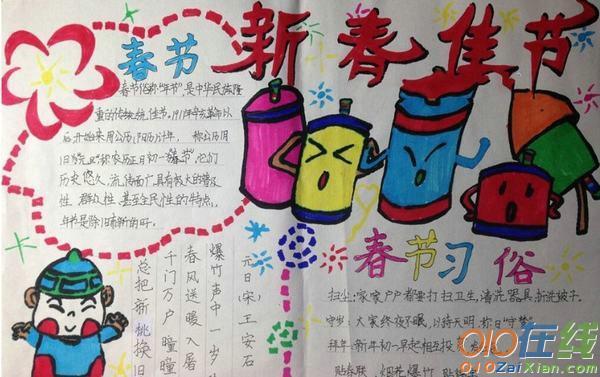 新春佳节
春节
春节俗称"年节",是中华民族隆
重的传统佳节,1911年辛亥革命以
后开始采用公历(阳历)计年,
农历正月初一"春节",它们
历史悠久,流传面广具有极大的普及
性 群众性 甚至全民性的特点,
年节是除旧布新的日
元日(宋)王安石
爆竹声中一岁
春风送暖入屠
千门万户曈曈
总把新桃换旧
春节习俗
扫尘:家家户户都要打扫卫生,清洗器具,拆洗被子.
守岁:大家终夜不眠,以待天明,称曰"守岁".
拜年:新年初一早起相互
贴春联 烟花爆竹
010在线
010ZaiXian.com